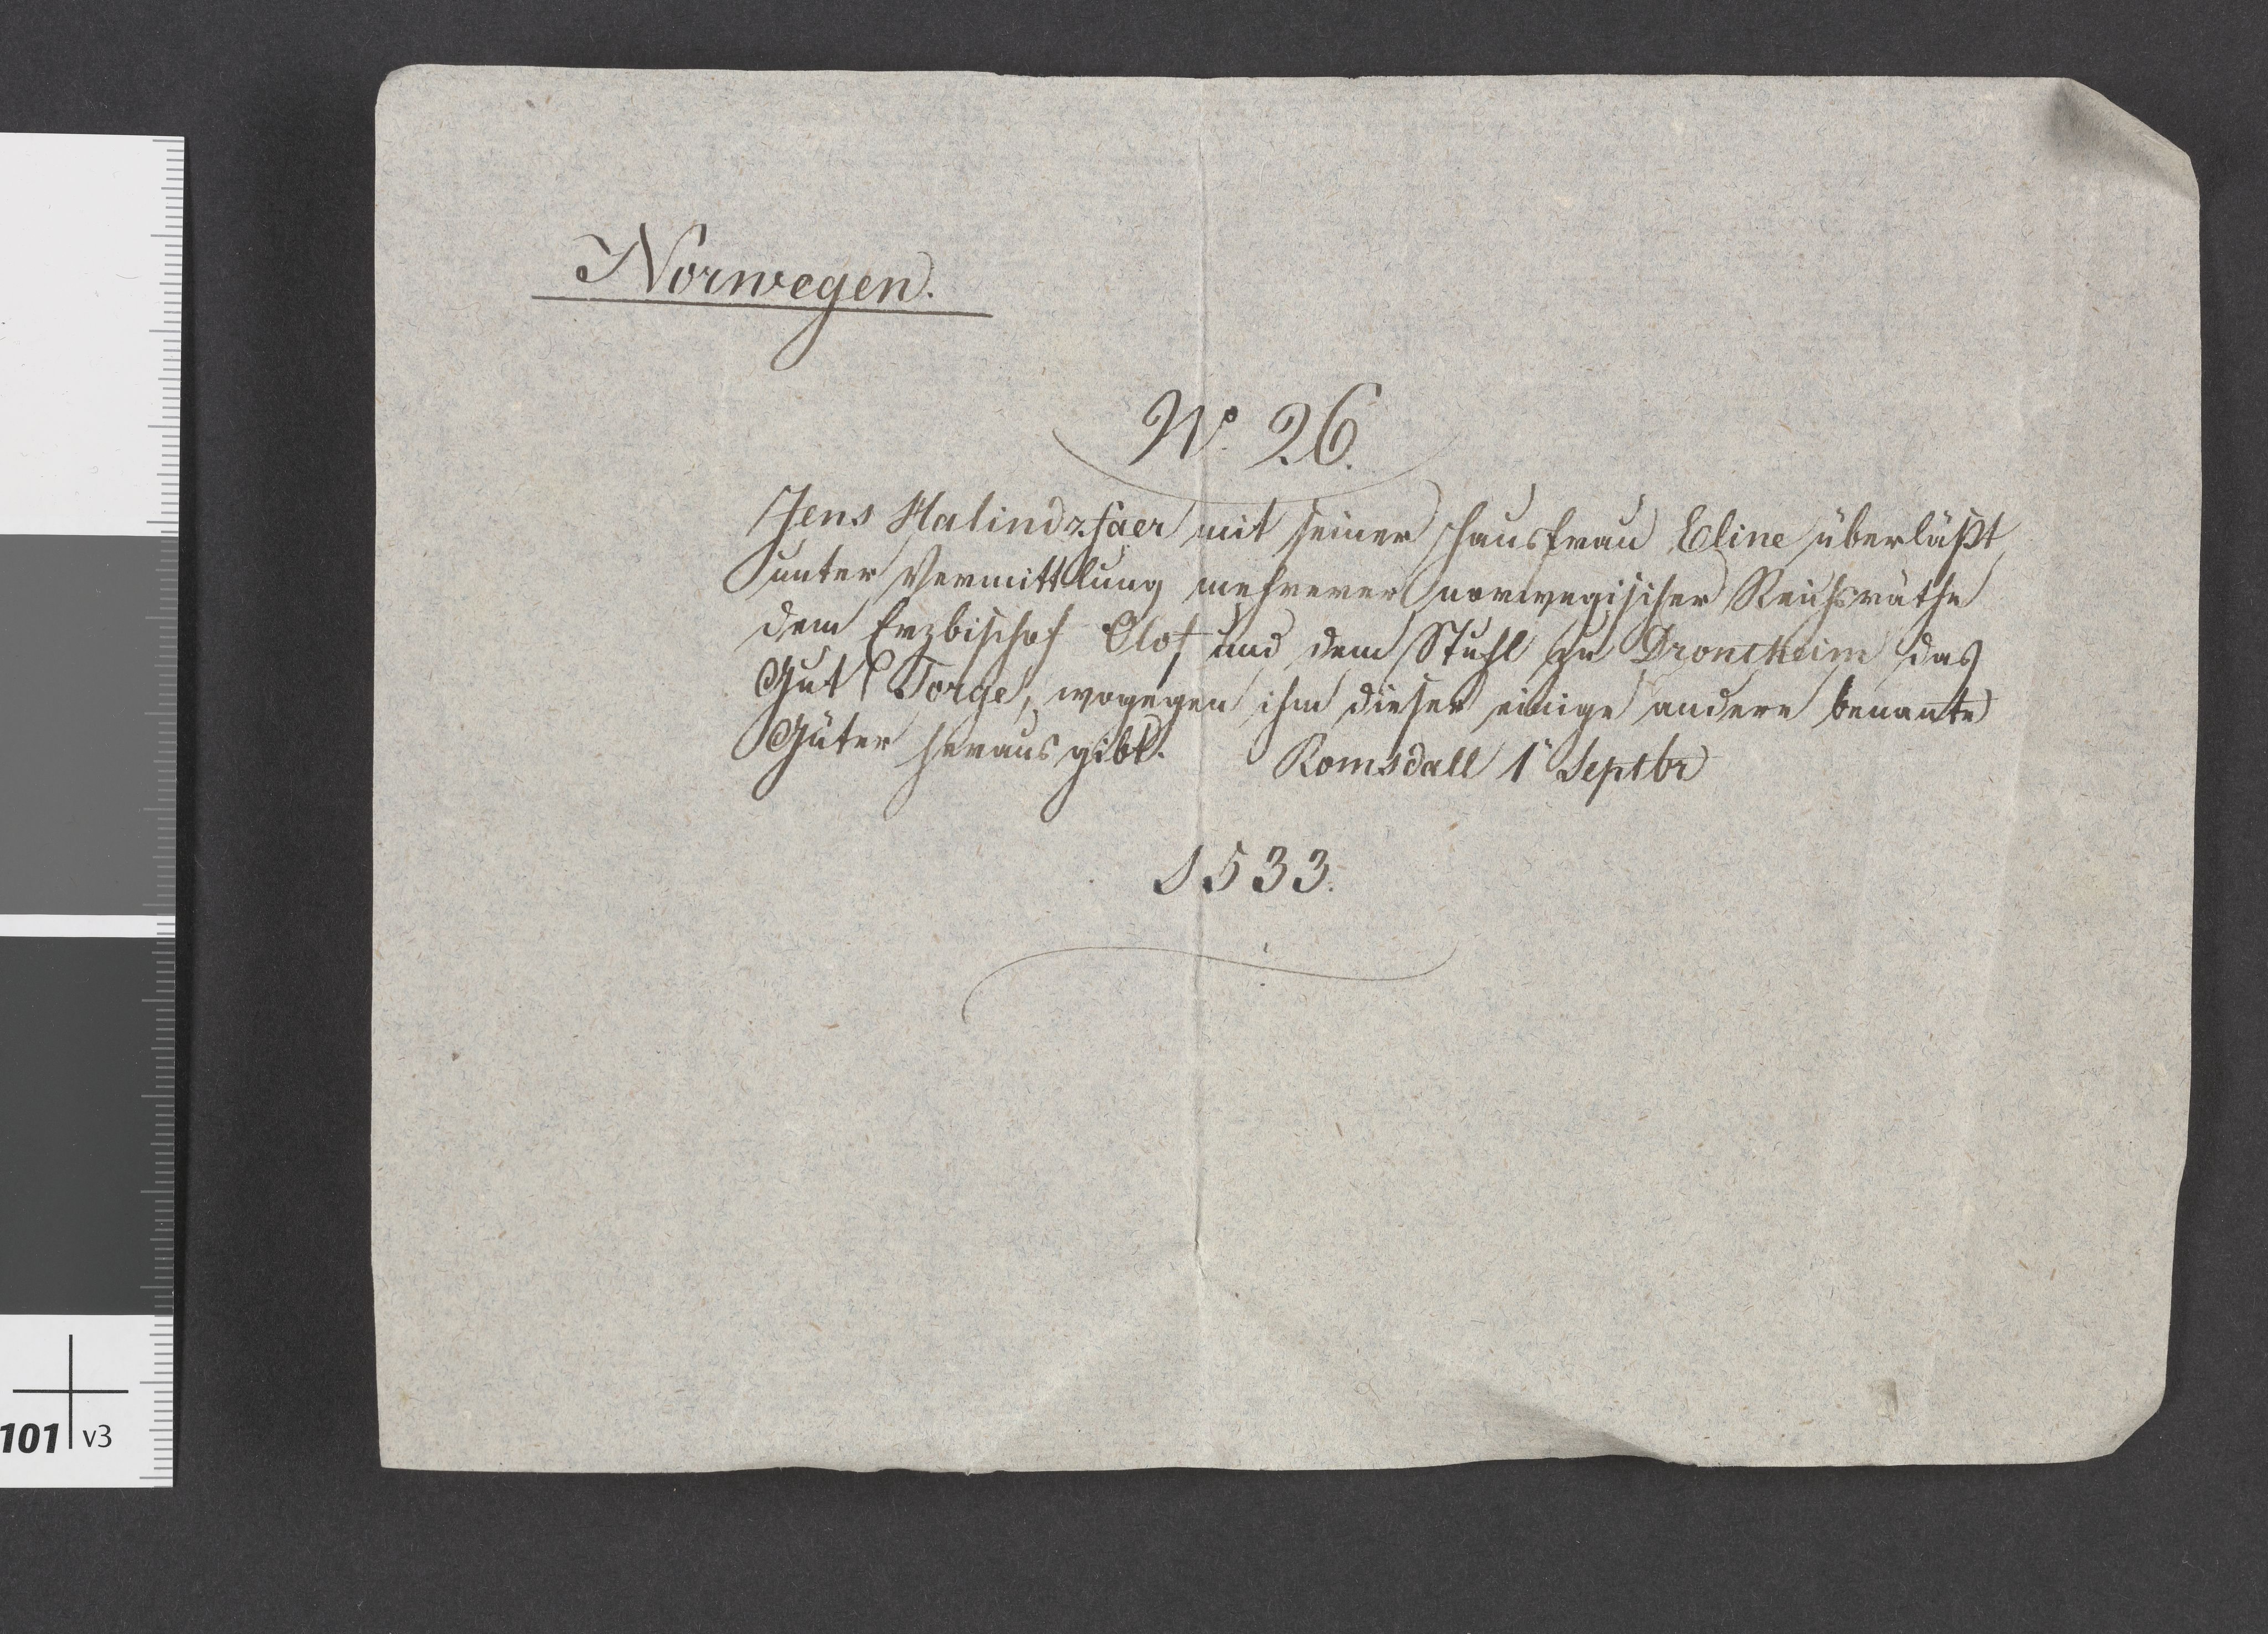 Norwegen.
No. 26.
Jens Halindzfaer mit seiner Hausfrau Eline überläßt,
unter Vermittlung mehrerer norwegischer Reichsräthe
dem Erzbischof Olof und dem Stuhl zu Drontheim das
Gut Torge, wogegen ihm dieser einige andere benannte
Güter heraus gibt. Romsdall 1 Septbr
1533.
101 v3